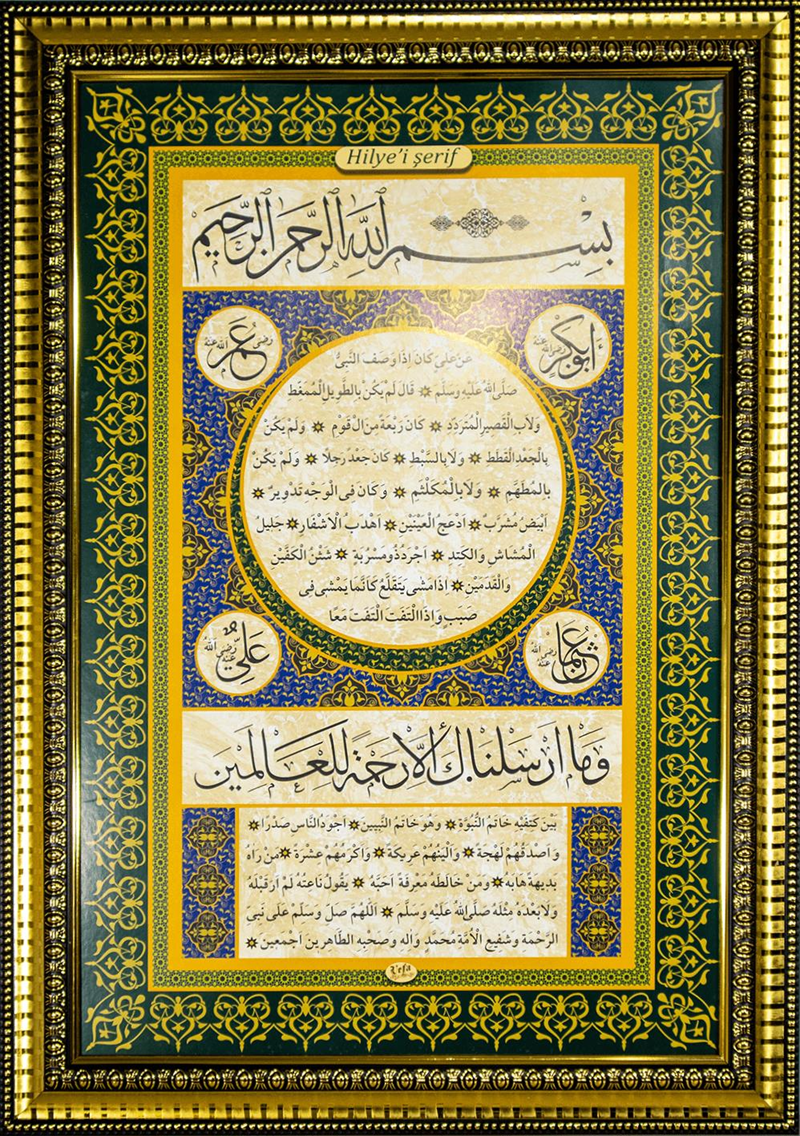 Hilye'i şerif
بِسْمِ اللّٰهِ الرَّحْمٰنِ الرَّحِيمِ
اَبُوبَكَرْ رَضِىَ اللّٰهُ عَنْهُ
عُمَرْ رَضِىَ اللّٰهُ عَنْهُ
عَنْ عَلِىٍّ كَانَ اِذَا وَصَفَ النَّبِىَّ
صَلَّى اللّٰهُ عَلَيْهِ وَسَلَّمَ ✷ قَالَ لَمْ يَكُنْ بِالطَّوِيلِ الْمُمَغَّطِ
وَلَابِ الْقَصِيرِ الْمُتَرَدِّدِ ✷ كَانَ رَبْعَةً مِنَ الْ قَوْمِ ✷ وَلَمْ يَكُنْ
بِالْجَعْدِ الْقَطَطِ ✷ وَلَا بِالسَّبْطِ ✷ كَانَ جَعْدً رَجِلًا ✷ وَلَمْ يَكُنْ
بِالْمُطَهَّمِ ✷ وَلَا بِالْمُكَلْثَمِ ✷ وَكَانَ فِى الْوَجْهِ تَدْوِيرٌ ✷
اَبْيَضُ مُشْرَبٌ ✷ اَدْعَجُ الْعَيْنَيْنِ ✷ اَهْدَبُ الْاَشْفَارِ ✷ جَلِيلُ
الْمُشَاشِ وَالْكَتِدِ ✷ اَجْرَدُ ذُو مَسْرُبَةٍ ✷ شَثْنُ الْكَفَّيْنِ
وَالْقَدَمَيْنِ ✷ اِذَا مَشٰى يَتَقَلَّعُ كَاَنَّمَا يَمْشِى فِى
صَبَبٍ وَاِذَا الْتَفَتَ الْتَفَتَ مَعًا
عُثْمَانْ رَضِىَ اللّٰهُ عَنْهُ
عَلِىٌّ رَضِىَ اللّٰهُ عَنْهُ
وَمَا اَرْسَلْنَاكَ اِلَّا رَحْمَةً لِلْعَالَمِينَ
بَيْنَ كَتِفَيْهِ خَاتَمُ النُّبُوَّةِ ✷ وَهُوَ خَاتَمُ النَّبِيينَ ✷ اَجْوَدُ النَّاسِ صَدْرًا ✷
وَاَصْدَقُهُمْ لَهْجَةً ✷ وَاَلْيَنُهُمْ عَرِيكَةً ✷ وَاَكْرَمُهُمْ عِشْرَةً ✷ مَنْ رَاٰهُ
بَدِيهَةً هَابَهُ ✷ وَمَنْ خَالَطَهُ مَعْرِفَةً اَحَبَّهُ ✷ يَقُولُ نَاعِتُهُ لَمْ اَرَ قَبْلَهُ
وَلَا بَعْدَهُ مِثْلَهُ صَلَّى اللّٰهُ عَلَيْهِ وَسَلَّمَ ✷ اَللّٰهُمَّ صَلِّ وَسَلِّمْ عَلٰى نَبِىِّ
الرَّحْمَةِ وَشَفِيعِ الْاُمَّةِ مُحَمَّدٍ وَاٰلِهِ وَصَحْبِهِ الطَّاهِرِينَ اَجْمَعِينَ ✷
Vefa